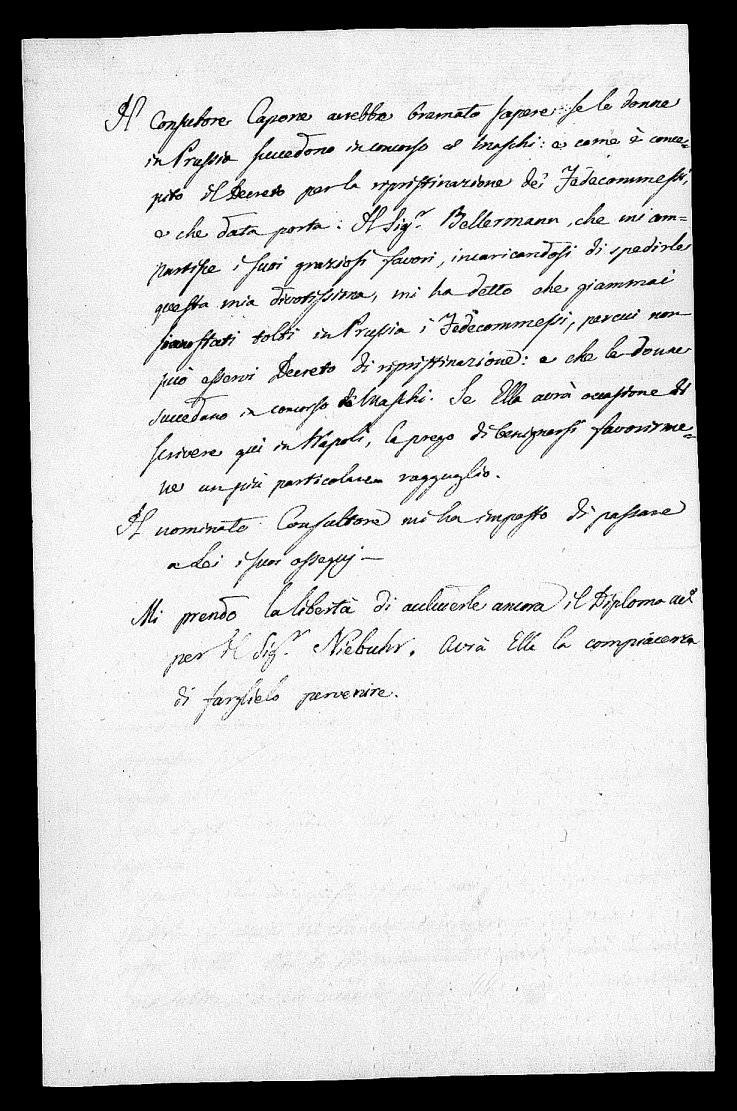 Il Consultore Capone avrebbe bramato sapere: se le donne
in Prussia succedono in concorso de' Maschi: e come è conce=
pito il Decreto per la ripristinazione de' Fedecommessi,
e che data porta: Il Sig.r Bellermann, che mi com=
partisce i suoi graziosi favori, incaricandosi di spedirle
questa mia divotissima, mi ha detto che giammai
siano stati tolti in Prussia i Fedecommessi, percui non
può esservi Decreto di ripristinazione: e che le donne
succedano in concorso de' Maschi. Se Ella avrà occasione di
scrivere qui in Napoli, la prego di benignarsi favorirme=
ne un più particolare ragguaglio.
Il nominato Consultore mi ha imposto di passare
a Lei i suoi ossequj —
Mi prendo la libertà di accluderle ancora il Diploma
per il Sig.r Niebuhr. Avrà Ella la compiacenza
di farglielo pervenire.